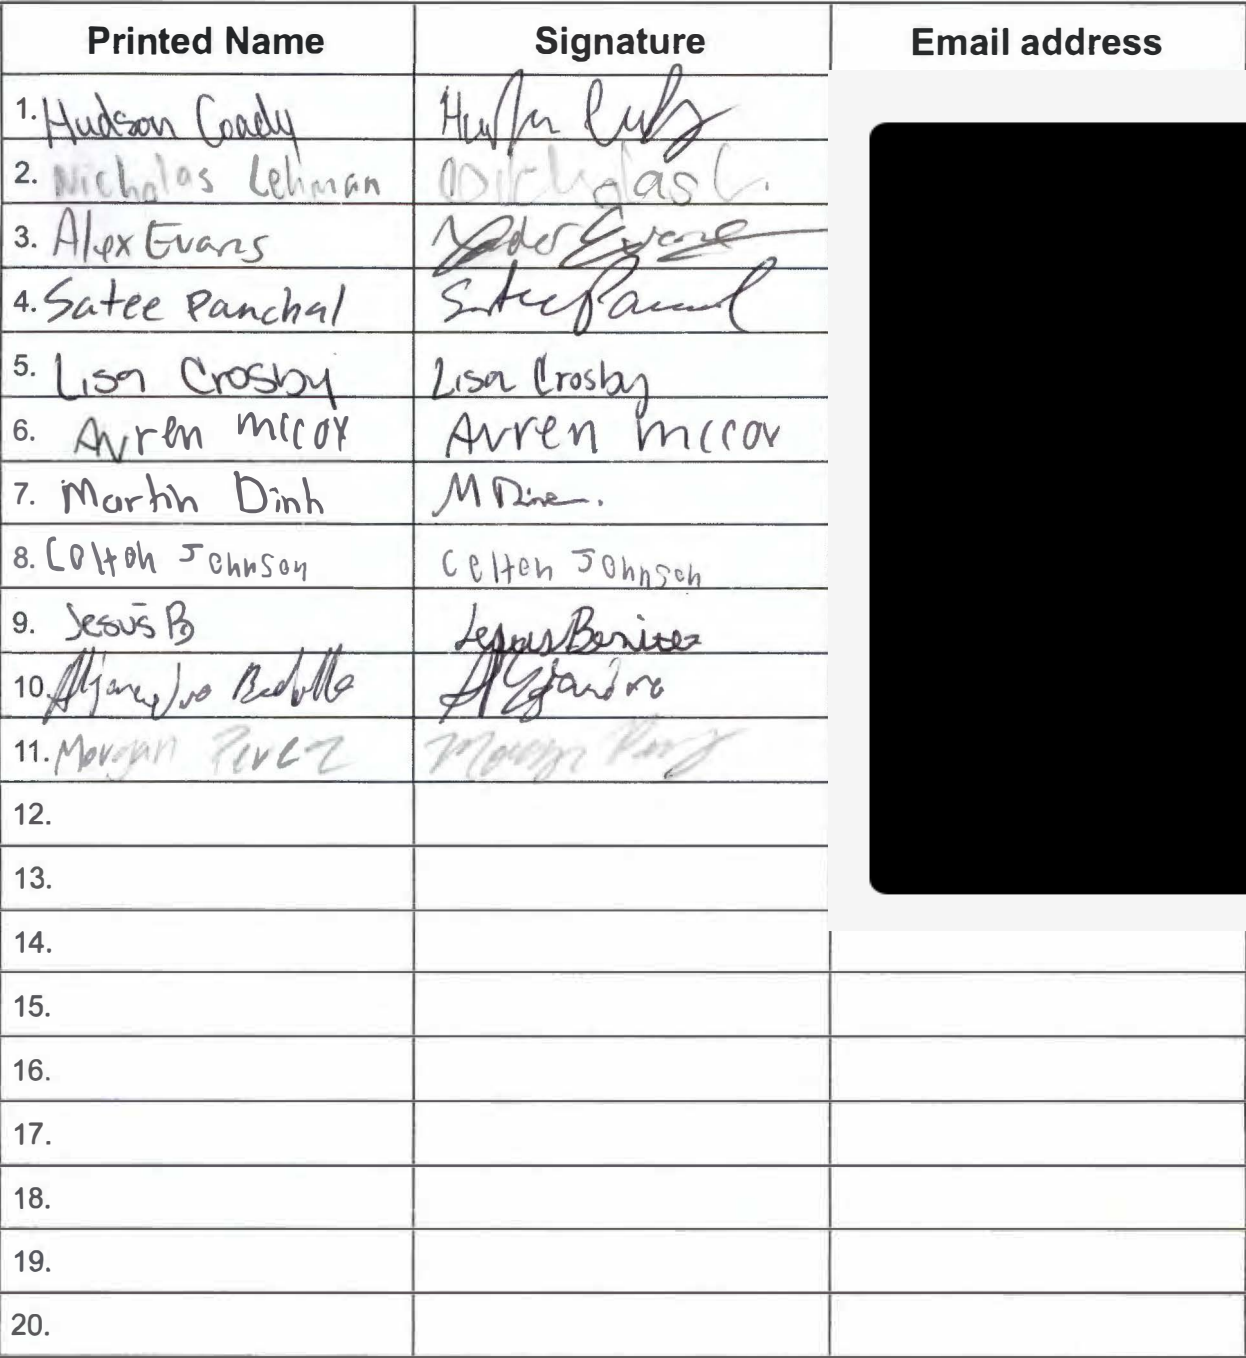 Printed Name Signature Email address
1. Hudson Coady
2. Nicholas Lehman Nicholas L.
3. Alex Evans Evans
4. Satee Panchal Satee Panchal
5. Lisa Crosby Lisa Crosby
6. Avren mccoy Avren mccoy
7. Martin Dinh M
8. Colton Johnson Colton Johnson
9. Jesús B Jesus Benitez
10. Alejandro Alejandro
11. Morgan Perez Morgan Perez
12.
13.
14.
15.
16.
17.
18.
19.
20.